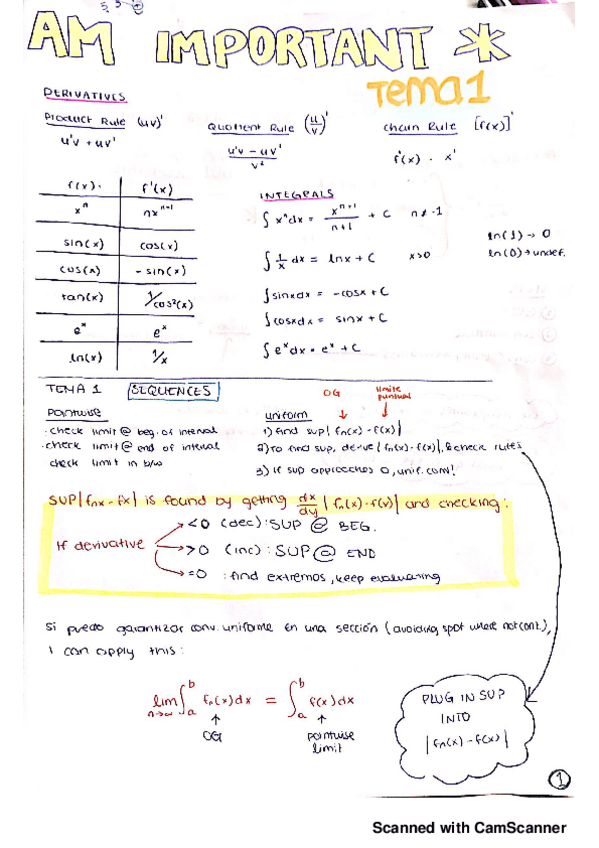 AM IMPORTANT *
Tema 1
DERIVATIVES
Product Rule (uv)'
u'v + uv'
Quotient Rule (u/v)'
u'v - uv' / v²
Chain Rule [f(x)]'
f'(x) · x'
f(x) f'(x)
xⁿ nxⁿ⁻¹
sin(x) cos(x)
cos(x) - sin(x)
tan(x) 1/cos²(x)
eˣ eˣ
ln(x) 1/x
INTEGRALS
∫ xⁿdx = xⁿ⁺¹/n+1 + C n ≠ -1
∫ 1/x dx = lnx + C x>0
∫ sinxdx = -cosx + C
∫ cosxdx = sinx + C
∫ eˣdx = eˣ + C
ln(1) → 0
ln(0) → undef.
TEMA 1 SEQUENCES
pointwise
· check limit @ beg. of interval
· check limit @ end of interval
check limit in b/w
OG
limite puntual
uniform
1) find sup|fn(x) - f(x)|
2) to find sup, derive |fn(x) - f(x)|, & check rules
3) If sup approaches 0, unif. conv!
SUP|fnx - fx| is found by getting dx/dy |fn(x) - f(x)| and checking:
If derivative
<0 (dec): SUP @ BEG.
>0 (inc): SUP @ END
=0 : find extremos, keep evaluating
Si puedo garantizar conv. uniforme en una sección (avoiding spot where not cont.),
I can apply this:
lim n→∞ ∫ₐᵇ fn(x)dx = ∫ₐᵇ f(x)dx
OG
pointwise limit
PLUG IN SUP
INTO
|fn(x) - f(x)|
1
Scanned with CamScanner